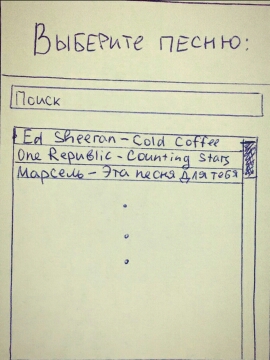 Выберите песню:
Поиск
Ed Sheeran – Cold Coffee
One Republic – Counting Stars
Марсель – Эта песня для тебя